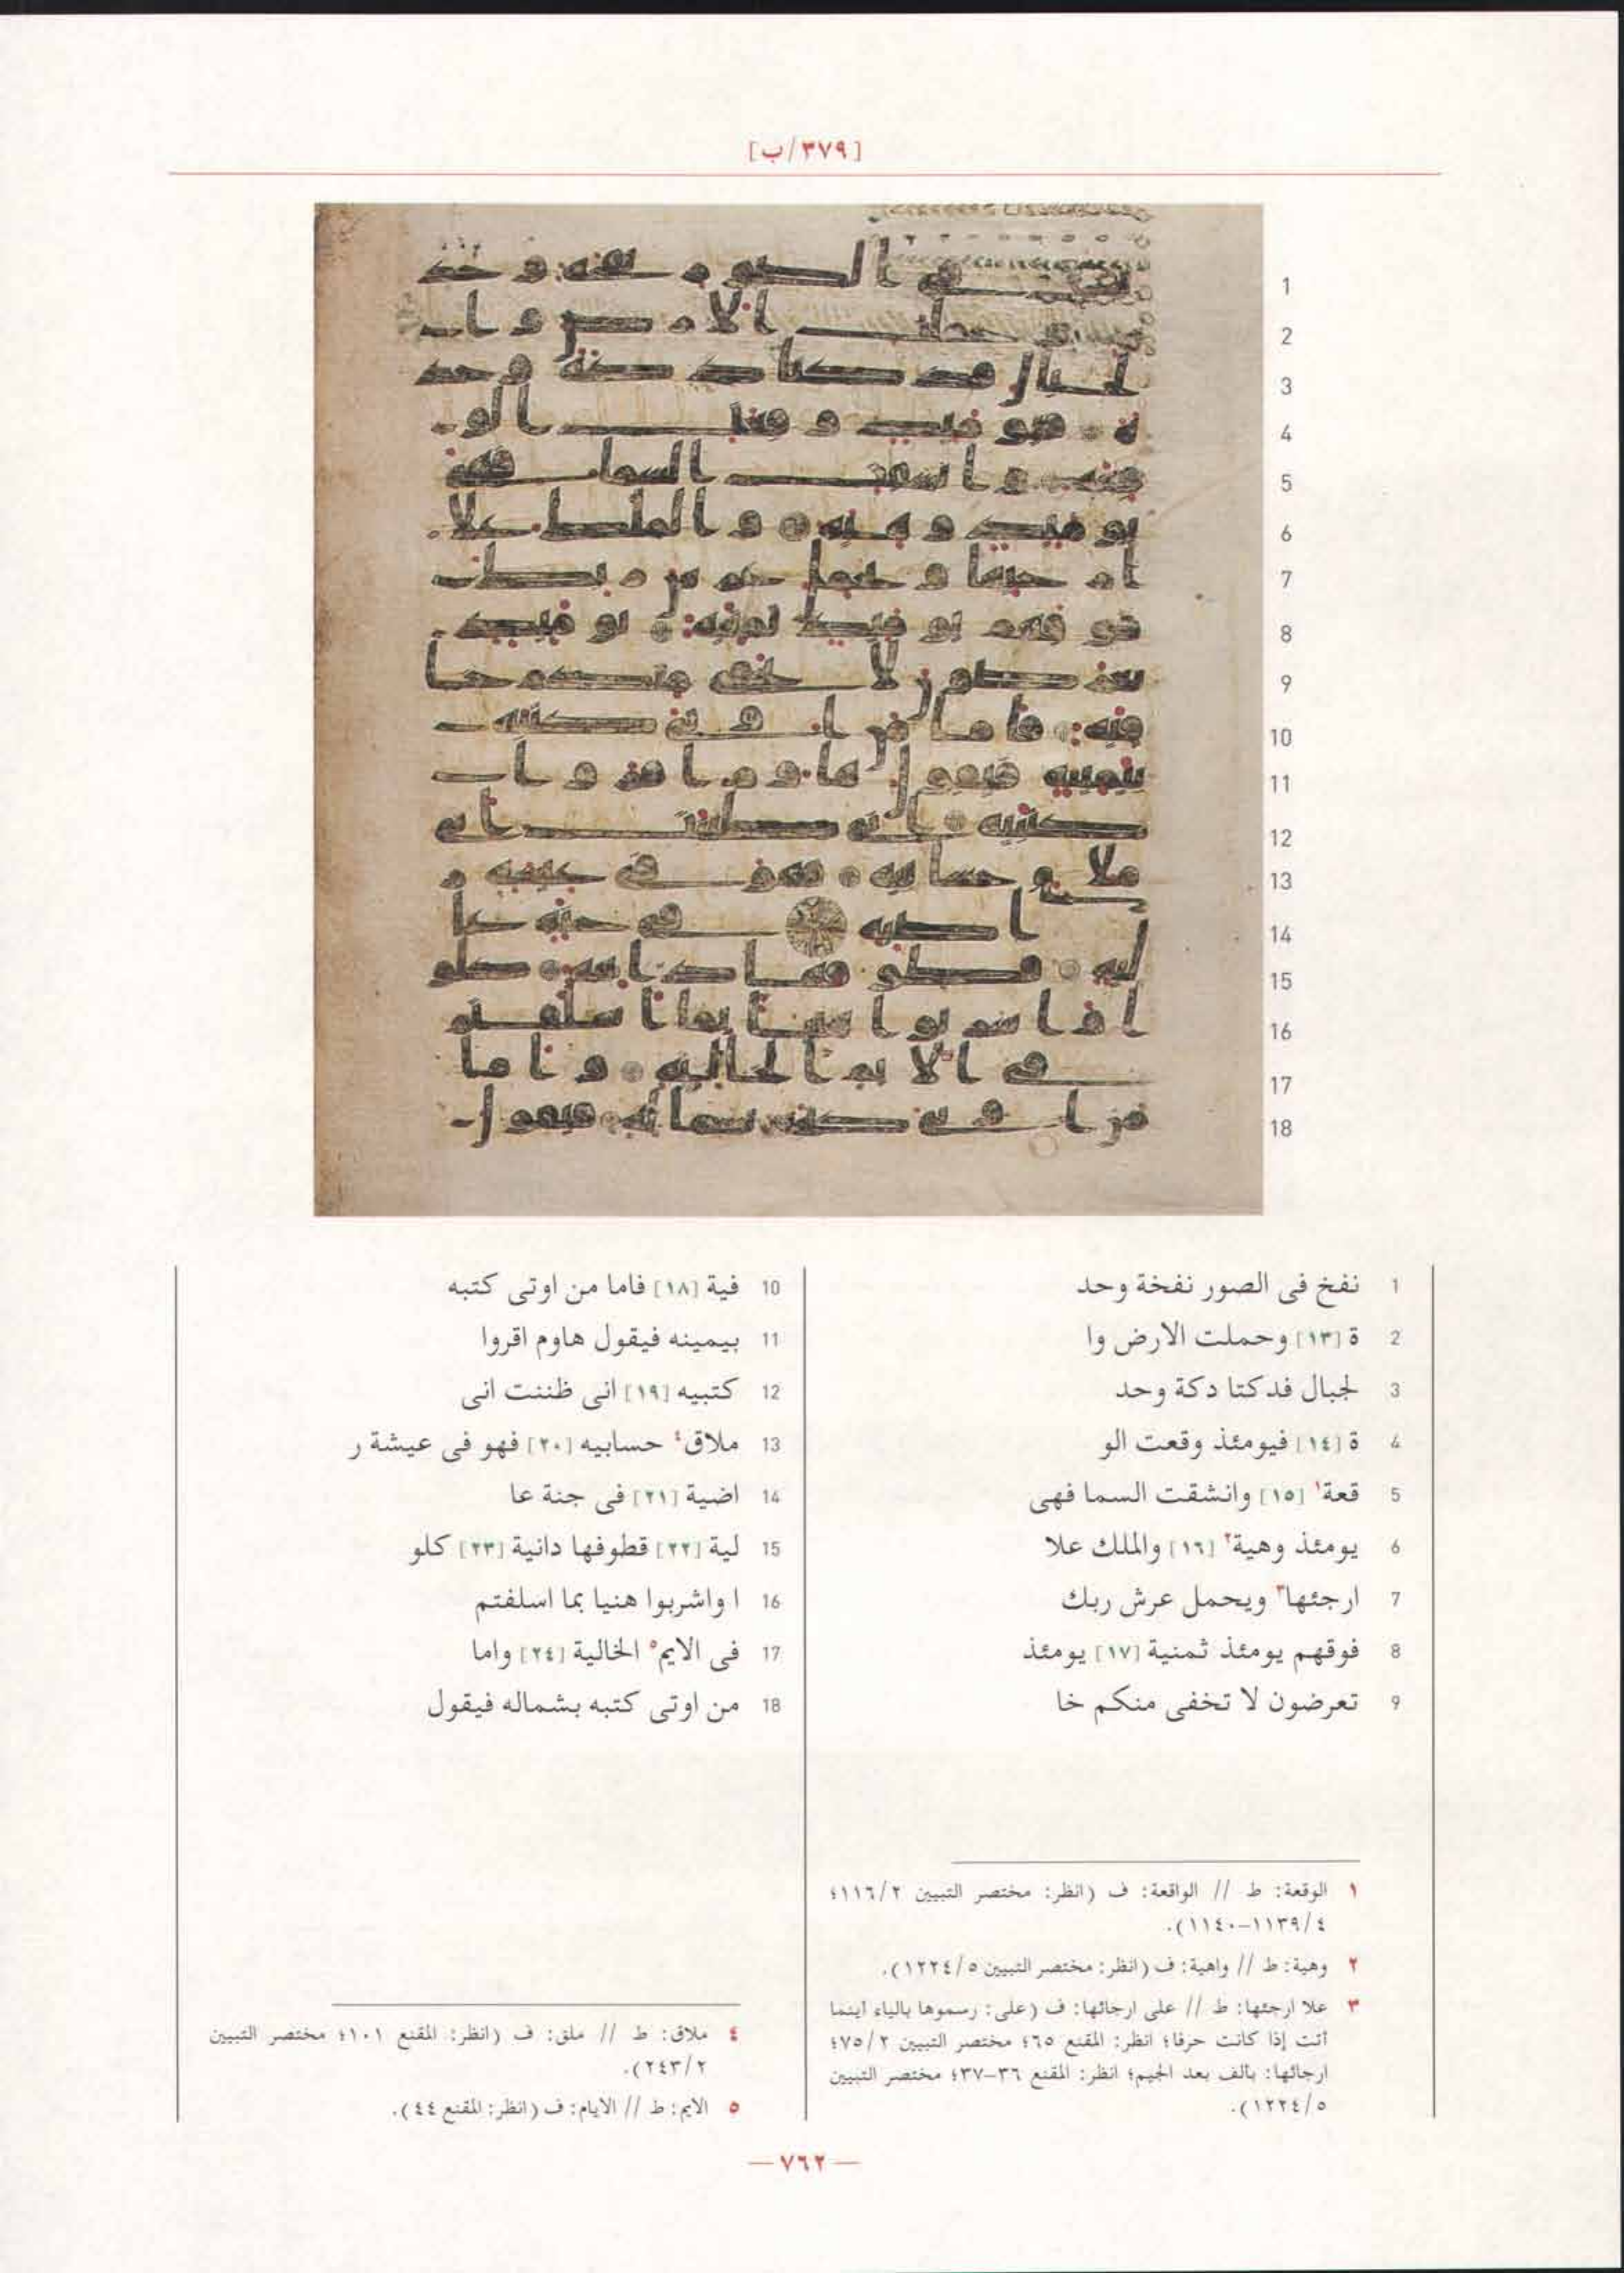 [٣٧٩/ب]
1 نفخ فى الصور نفخة وحد
2 ة [١٣] وحملت الارض وا
3 لجبال فدكتا دكة وحد
4 ة [١٤] فيومئذ وقعت الو
5 قعة١ [١٥] وانشقت السما فهى
6 يومئذ وهية٢ [١٦] والملك علا
7 ارجئها٣ ويحمل عرش ربك
8 فوقهم يومئذ ثمنية [١٧] يومئذ
9 تعرضون لا تخفى منكم خا
10 فية [١٨] فاما من اوتى كتبه
11 بيمينه فيقول هاوم اقروا
12 كتبيه [١٩] انى ظننت انى
13 ملاق٤ حسابيه [٢٠] فهو فى عيشة ر
14 اضية [٢١] فى جنة عا
15 لية [٢٢] قطوفها دانية [٢٣] كلو
16 ا واشربوا هنيا بما اسلفتم
17 فى الايم٥ الخالية [٢٤] واما
18 من اوتى كتبه بشماله فيقول
١ الوقعة: ط // الواقعة: ف (انظر: مختصر التبيين ١١٦/٢؛
١١٣٩/٤-١١٤٠).
٢ وهية: ط // واهية: ف (انظر: مختصر التبيين ١٢٢٤/٥).
٣ علا ارجئها: ط // على ارجائها: ف (على: رسموها بالياء اينما
أتت إذا كانت حرفا؛ انظر: المقنع ٦٥؛ مختصر التبيين ٧٥/٢؛
ارجائها: بألف بعد الجيم؛ انظر: المقنع ٣٦-٣٧؛ مختصر التبيين
١٢٢٤/٥).
٤ ملاق: ط // ملق: ف (انظر: المقنع ١٠١؛ مختصر التبيين
٢٤٣/٢).
٥ الايم: ط // الايام: ف (انظر: المقنع ٤٤).
— ٧٦٢ —